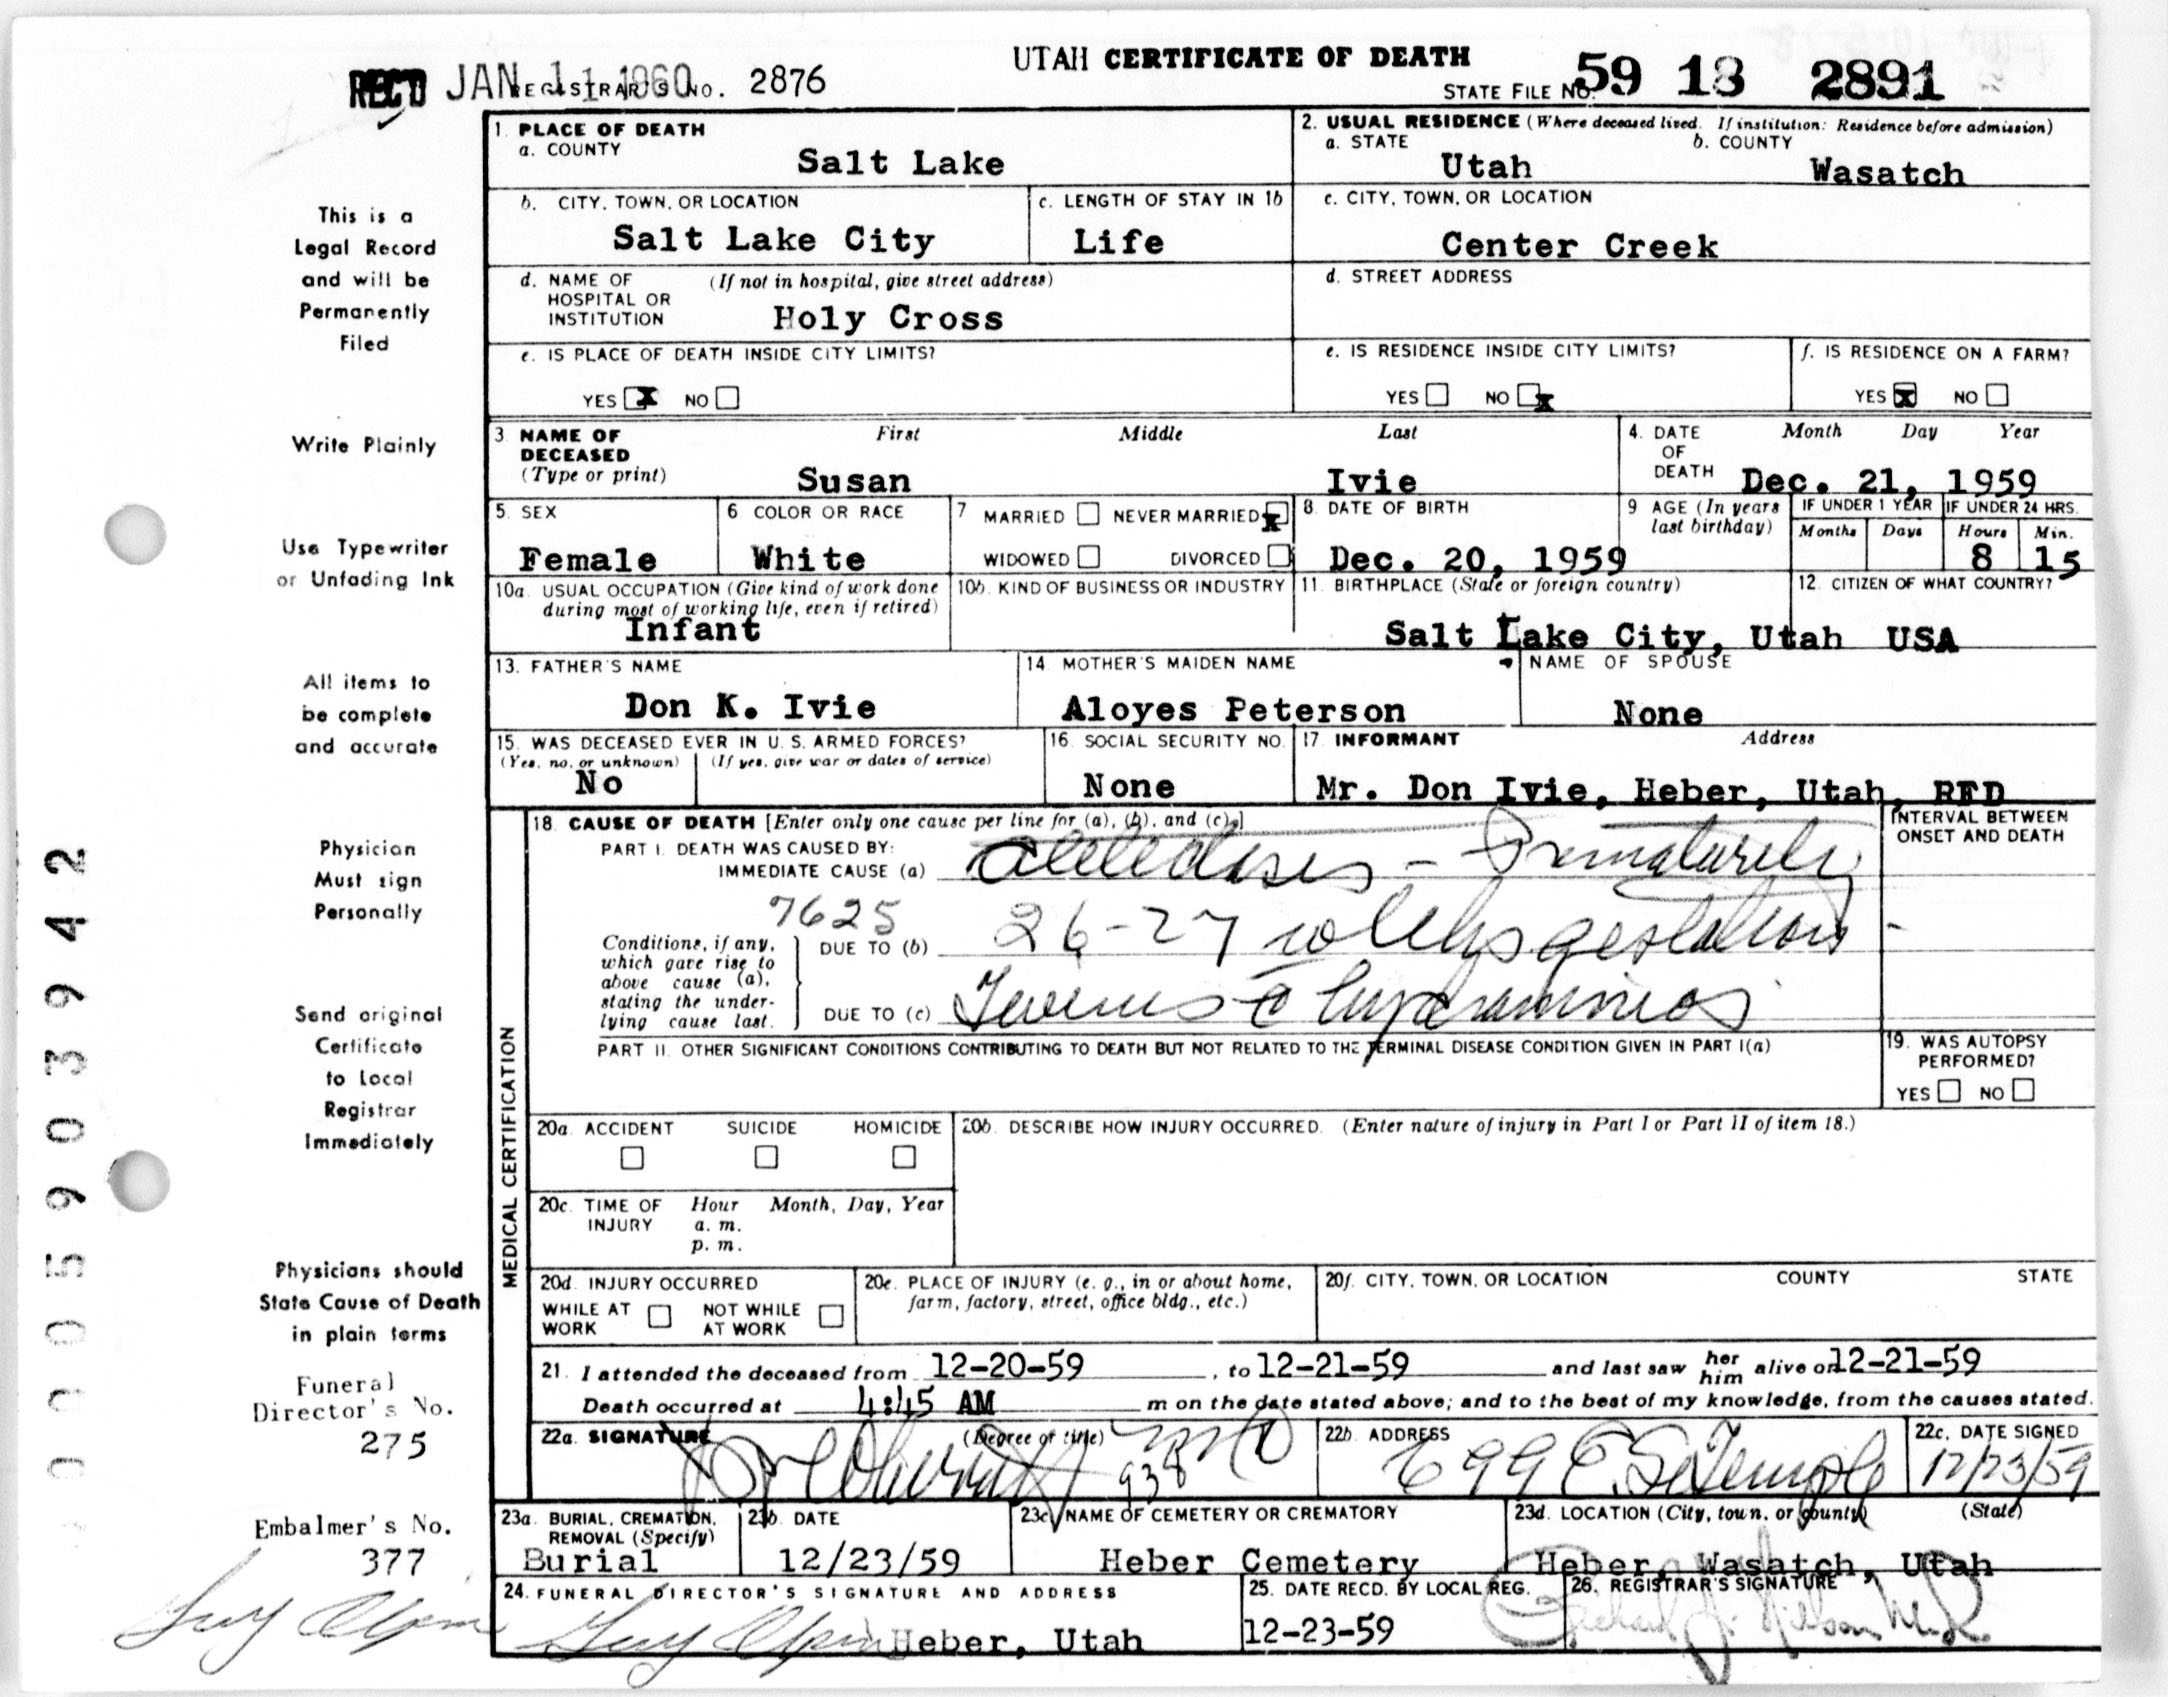 UTAH CERTIFICATE OF DEATH
REC'D JAN 11 1960 REGISTRAR'S NO. 2876
STATE FILE NO. 59 18 2891
1. PLACE OF DEATH
a. COUNTY
Salt Lake
2. USUAL RESIDENCE (Where deceased lived. If institution: Residence before admission)
a. STATE b. COUNTY
Utah Wasatch
b. CITY, TOWN, OR LOCATION
Salt Lake City
c. LENGTH OF STAY IN 1b
Life
c. CITY, TOWN, OR LOCATION
Center Creek
d. NAME OF HOSPITAL OR INSTITUTION (If not in hospital, give street address)
Holy Cross
d. STREET ADDRESS
e. IS PLACE OF DEATH INSIDE CITY LIMITS?
YES X NO
e. IS RESIDENCE INSIDE CITY LIMITS?
YES NO X
f. IS RESIDENCE ON A FARM?
YES X NO
3 NAME OF DECEASED (Type or print)
First Middle Last
Susan Ivie
4. DATE OF DEATH
Month Day Year
Dec. 21, 1959
5. SEX
Female
6 COLOR OR RACE
White
7 MARRIED NEVER MARRIED X
WIDOWED DIVORCED
8. DATE OF BIRTH
Dec. 20, 1959
9 AGE (In years last birthday)
IF UNDER 1 YEAR
Months Days
IF UNDER 24 HRS.
Hours Min.
8 15
10a. USUAL OCCUPATION (Give kind of work done during most of working life, even if retired)
Infant
10b. KIND OF BUSINESS OR INDUSTRY
11. BIRTHPLACE (State or foreign country)
Salt Lake City, Utah
12. CITIZEN OF WHAT COUNTRY?
USA
13. FATHER'S NAME
Don K. Ivie
14 MOTHER'S MAIDEN NAME
Aloyes Peterson
NAME OF SPOUSE
None
15. WAS DECEASED EVER IN U. S. ARMED FORCES?
(Yes, no, or unknown) (If yes, give war or dates of service)
No
16. SOCIAL SECURITY NO.
None
17. INFORMANT Address
Mr. Don Ivie, Heber, Utah, RFD
MEDICAL CERTIFICATION
18. CAUSE OF DEATH [Enter only one cause per line for (a), (b), and (c).]
PART I. DEATH WAS CAUSED BY:
IMMEDIATE CAUSE (a) - Prematurely
INTERVAL BETWEEN ONSET AND DEATH
7625
Conditions, if any, which gave rise to above cause (a), stating the underlying cause last.
DUE TO (b) 26-27 weeks gestation
DUE TO (c) c̄ hydramnios
PART II. OTHER SIGNIFICANT CONDITIONS CONTRIBUTING TO DEATH BUT NOT RELATED TO THE TERMINAL DISEASE CONDITION GIVEN IN PART I(a)
19. WAS AUTOPSY PERFORMED?
YES NO
20a. ACCIDENT SUICIDE HOMICIDE
20b. DESCRIBE HOW INJURY OCCURRED. (Enter nature of injury in Part I or Part II of item 18.)
20c. TIME OF INJURY Hour Month, Day, Year
a. m.
p. m.
20d. INJURY OCCURRED
WHILE AT WORK NOT WHILE AT WORK
20e. PLACE OF INJURY (e. g., in or about home, farm, factory, street, office bldg., etc.)
20f. CITY, TOWN, OR LOCATION COUNTY STATE
21. I attended the deceased from 12-20-59, to 12-21-59 and last saw her him alive on 12-21-59
Death occurred at 4:45 AM m on the date stated above; and to the best of my knowledge, from the causes stated.
22a. SIGNATURE (Degree or title)
MD
938
22b. ADDRESS
699 E. So Temple
22c. DATE SIGNED
12/23/59
23a. BURIAL, CREMATION, REMOVAL (Specify)
Burial
23b. DATE
12/23/59
23c. NAME OF CEMETERY OR CREMATORY
Heber Cemetery
23d. LOCATION (City, town, or county) (State)
Heber, Wasatch, Utah
24. FUNERAL DIRECTOR'S SIGNATURE AND ADDRESS
Heber, Utah
25. DATE RECD. BY LOCAL REG.
12-23-59
26. REGISTRAR'S SIGNATURE
This is a
Legal Record
and will be
Permanently
Filed
Write Plainly
Use Typewriter
or Unfading Ink
All items to
be complete
and accurate
Physician
Must sign
Personally
Send original
Certificate
to Local
Registrar
Immediately
Physicians should
State Cause of Death
in plain terms
Funeral
Director's No.
275
Embalmer's No.
377
0005903942